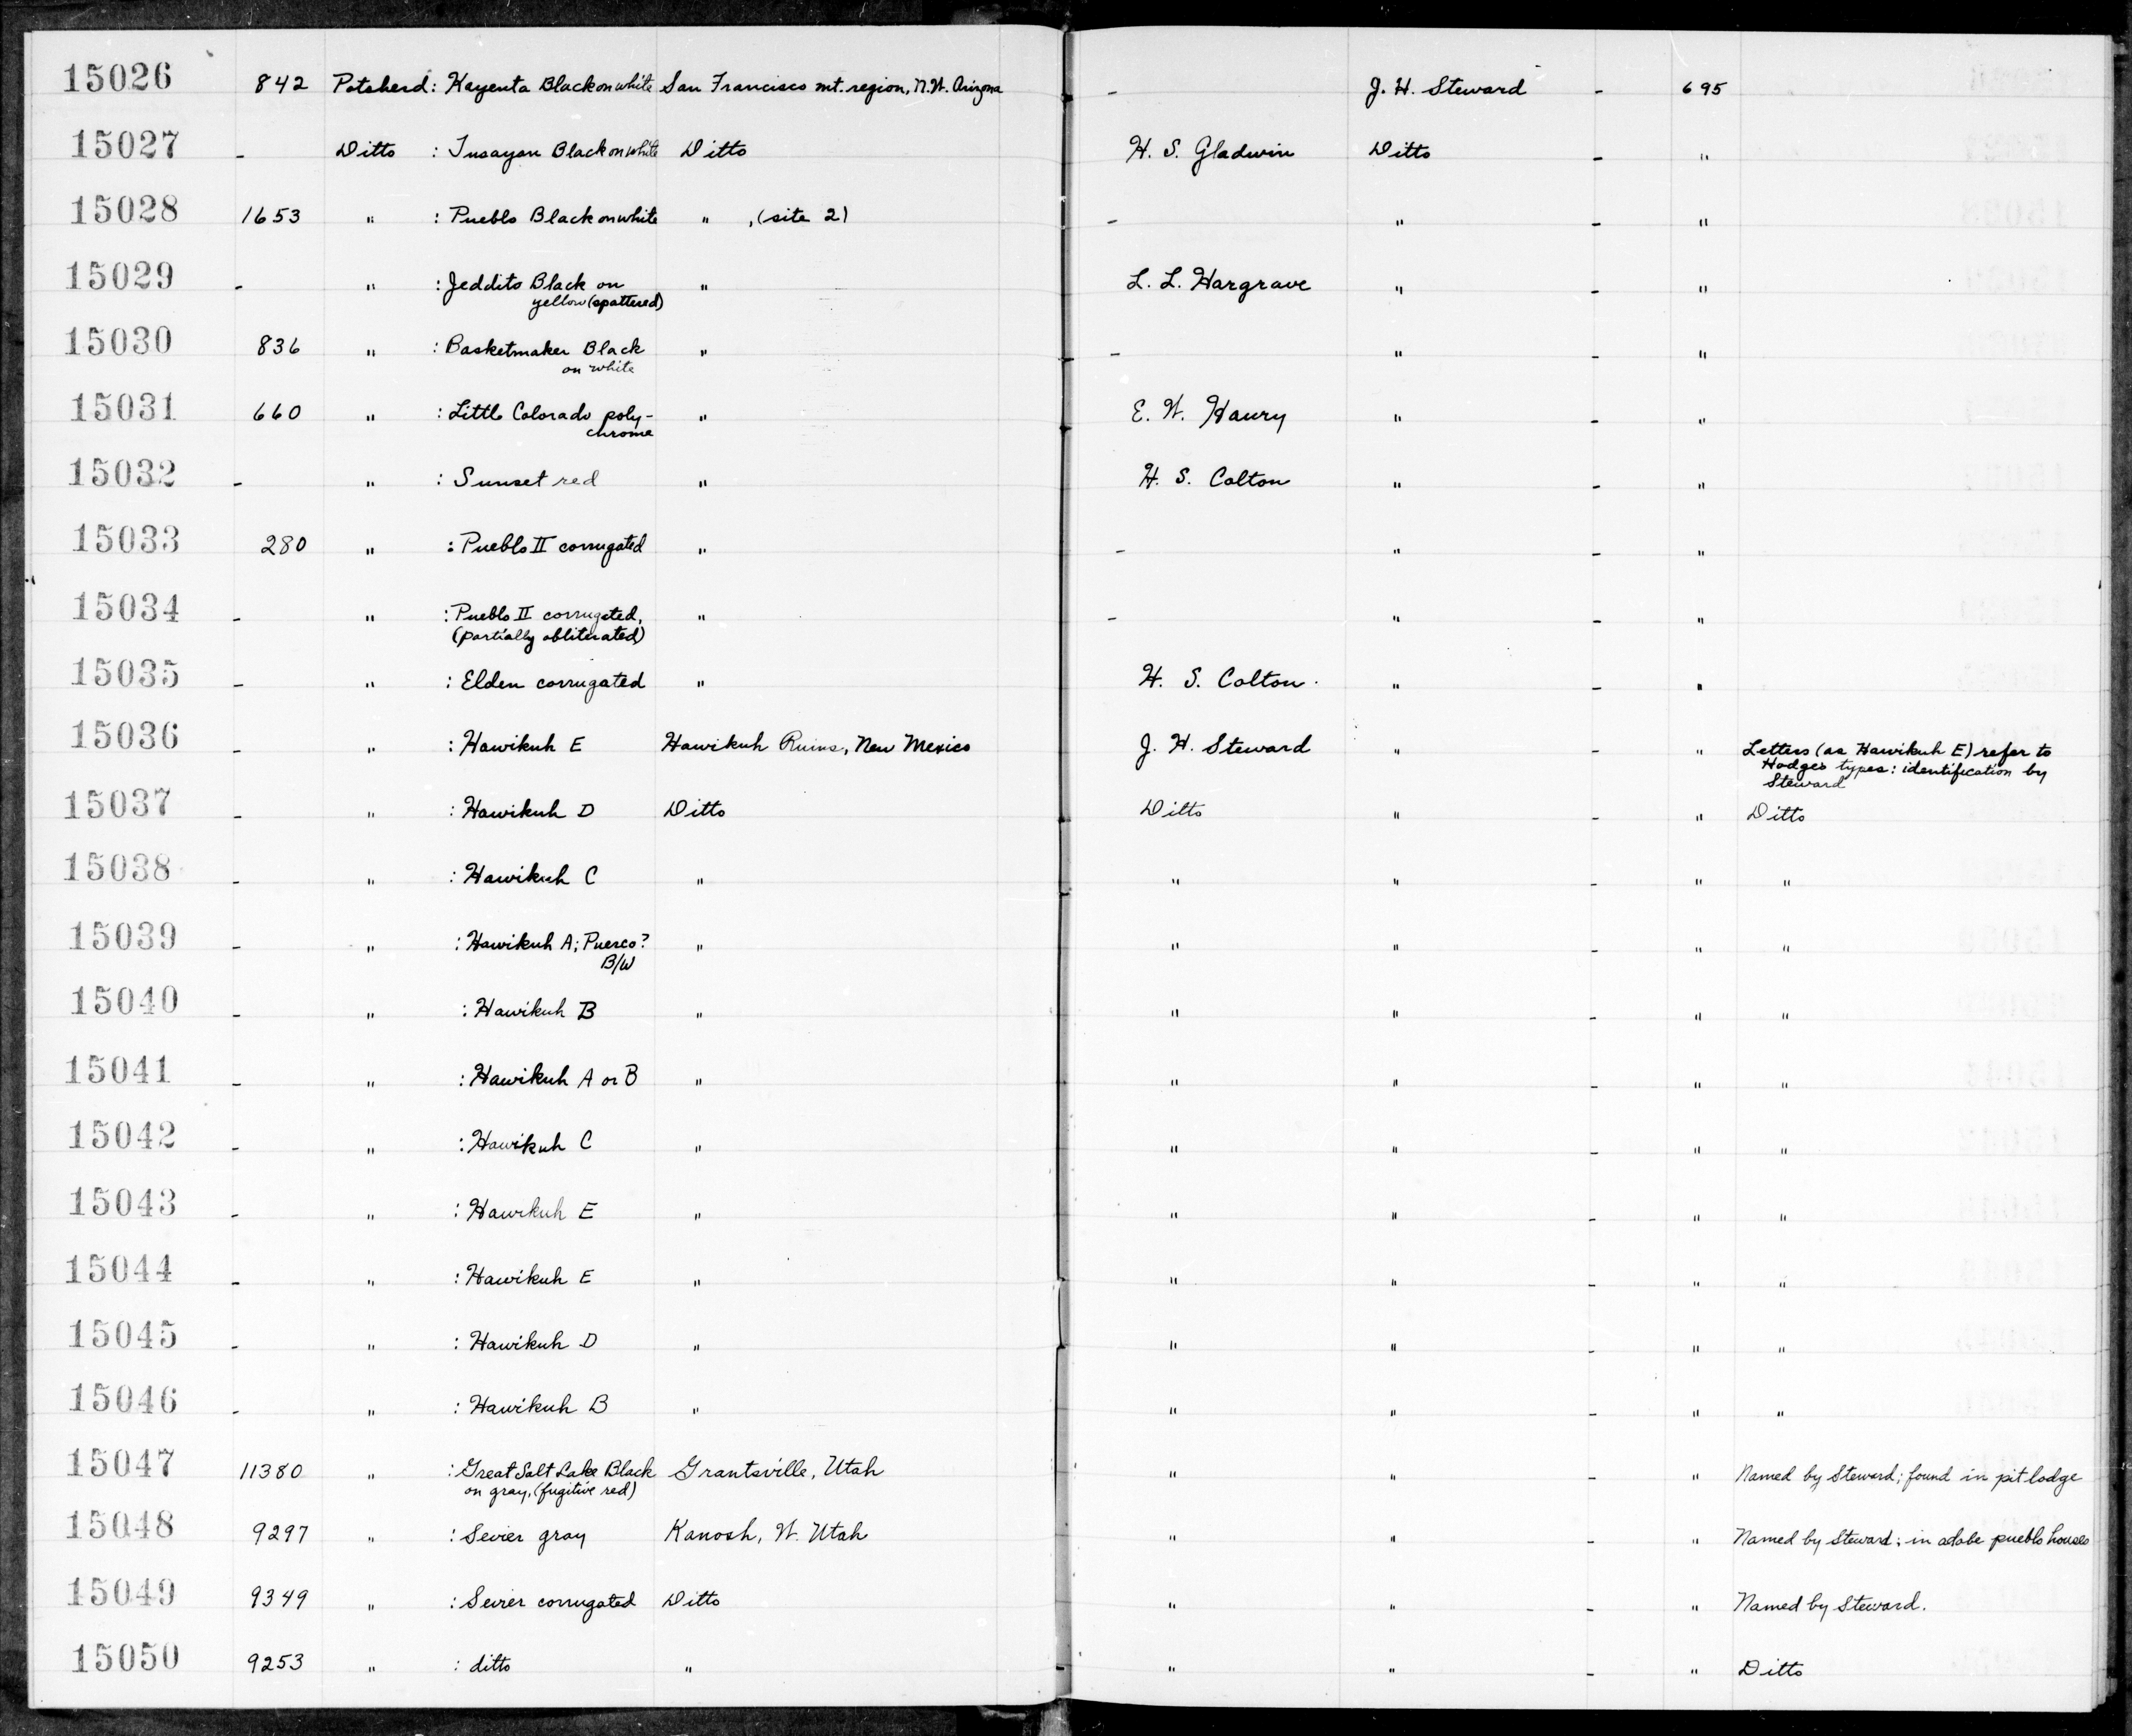 15026 842 Potsherd: Kayenta Black on white San Francisco mt. region, N.W. Arizona - J. H. Steward - 695
15027 - Ditto : Tusayan Black on white Ditto H. S. Gladwin Ditto - "
15028 1653 " : Pueblo Black on white " , (site 2) - " - "
15029 - " : Jeddito Black on " L. L. Hargrave " - "
yellow (spattered)
15030 836 " : Basketmaker Black " - " - "
on white
15031 660 " : Little Colorado poly- " E. W. Haury " - "
chrome
15032 - " : Sunset red " H. S. Colton " - "
15033 280 " : Pueblo II corrugated " - " - "
15034 - " : Pueblo II corrugated, " - " - "
(partially obliterated)
15035 - " : Elden corrugated " H. S. Colton " - "
15036 - " : Hawikuh E Hawikuh Ruins, New Mexico J. H. Steward " - " Letters (as Hawikuh E) refer to
Hodges types: identification by
Steward
15037 - " : Hawikuh D Ditto Ditto " - " Ditto
15038 - " : Hawikuh C " " " - " "
15039 - " : Hawikuh A; Puerco? " " " - " "
B/W
15040 - " : Hawikuh B " " " - " "
15041 - " : Hawikuh A or B " " " - " "
15042 - " : Hawikuh C " " " - " "
15043 - " : Hawikuh E " " " - " "
15044 - " : Hawikuh E " " " - " "
15045 - " : Hawikuh D " " " - " "
15046 - " : Hawikuh B " " " - " "
15047 11380 " : Great Salt Lake Black Grantsville, Utah " " - " Named by Steward; found in pit lodge
on gray, (fugitive red)
15048 9297 " : Sevier gray Kanosh, W. Utah " " - " Named by Steward; in adobe pueblo houses
15049 9349 " : Sevier corrugated Ditto " " - " Named by Steward.
15050 9253 " : ditto " " " - " Ditto